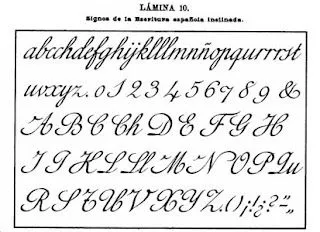 LÁMINA 10.
Signos de la Escritura española inclinada.
abcchdefghijklllmnñopqurrrst
uvxyz. 0 1 2 3 4 5 6 7 8 9 &
A B C Ch D E F G H
I J H L Ll M N O P Qu
R S T U V X Y Z. ( ) ¡ ! ¿ ? " „